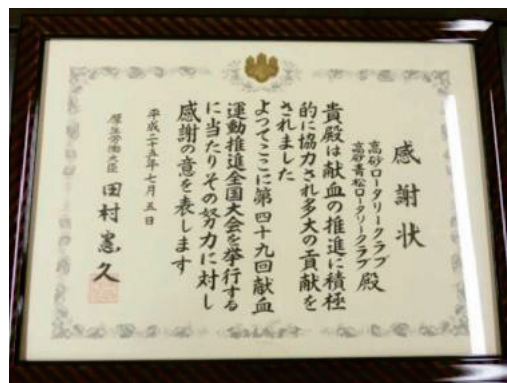 感謝状
高砂ロータリークラブ
高砂青松ロータリークラブ 殿
貴殿は献血の推進に積極
的に協力され多大の貢献を
されました
よつてここに第四十九回献血
運動推進全国大会を挙行する
に当たりその努力に対し
感謝の意を表します
平成二十五年七月五日
厚生労働大臣 田村憲久